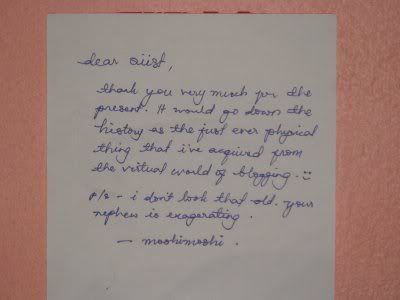 dear siist,
thank you very much for the
present. it would go down the
history as the first ever physical
thing that i've acquired from
the virtual world of blogging. :)
p/s - i don't look that old. your
nephew is exagerating.
- moshimoshi.